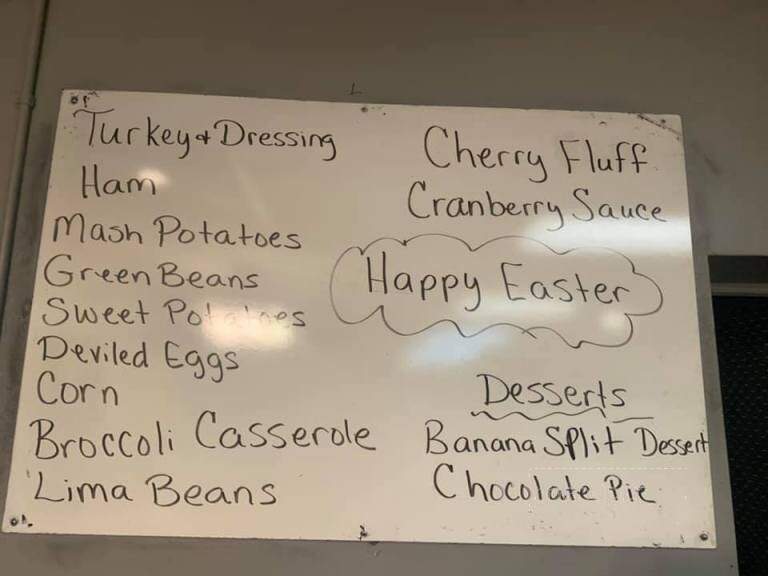 Turkey & Dressing
Ham
Mash Potatoes
Green Beans
Sweet Potatoes
Deviled Eggs
Corn
Broccoli Casserole
Lima Beans
Cherry Fluff
Cranberry Sauce
Happy Easter
Desserts
Banana Split Dessert
Chocolate Pie